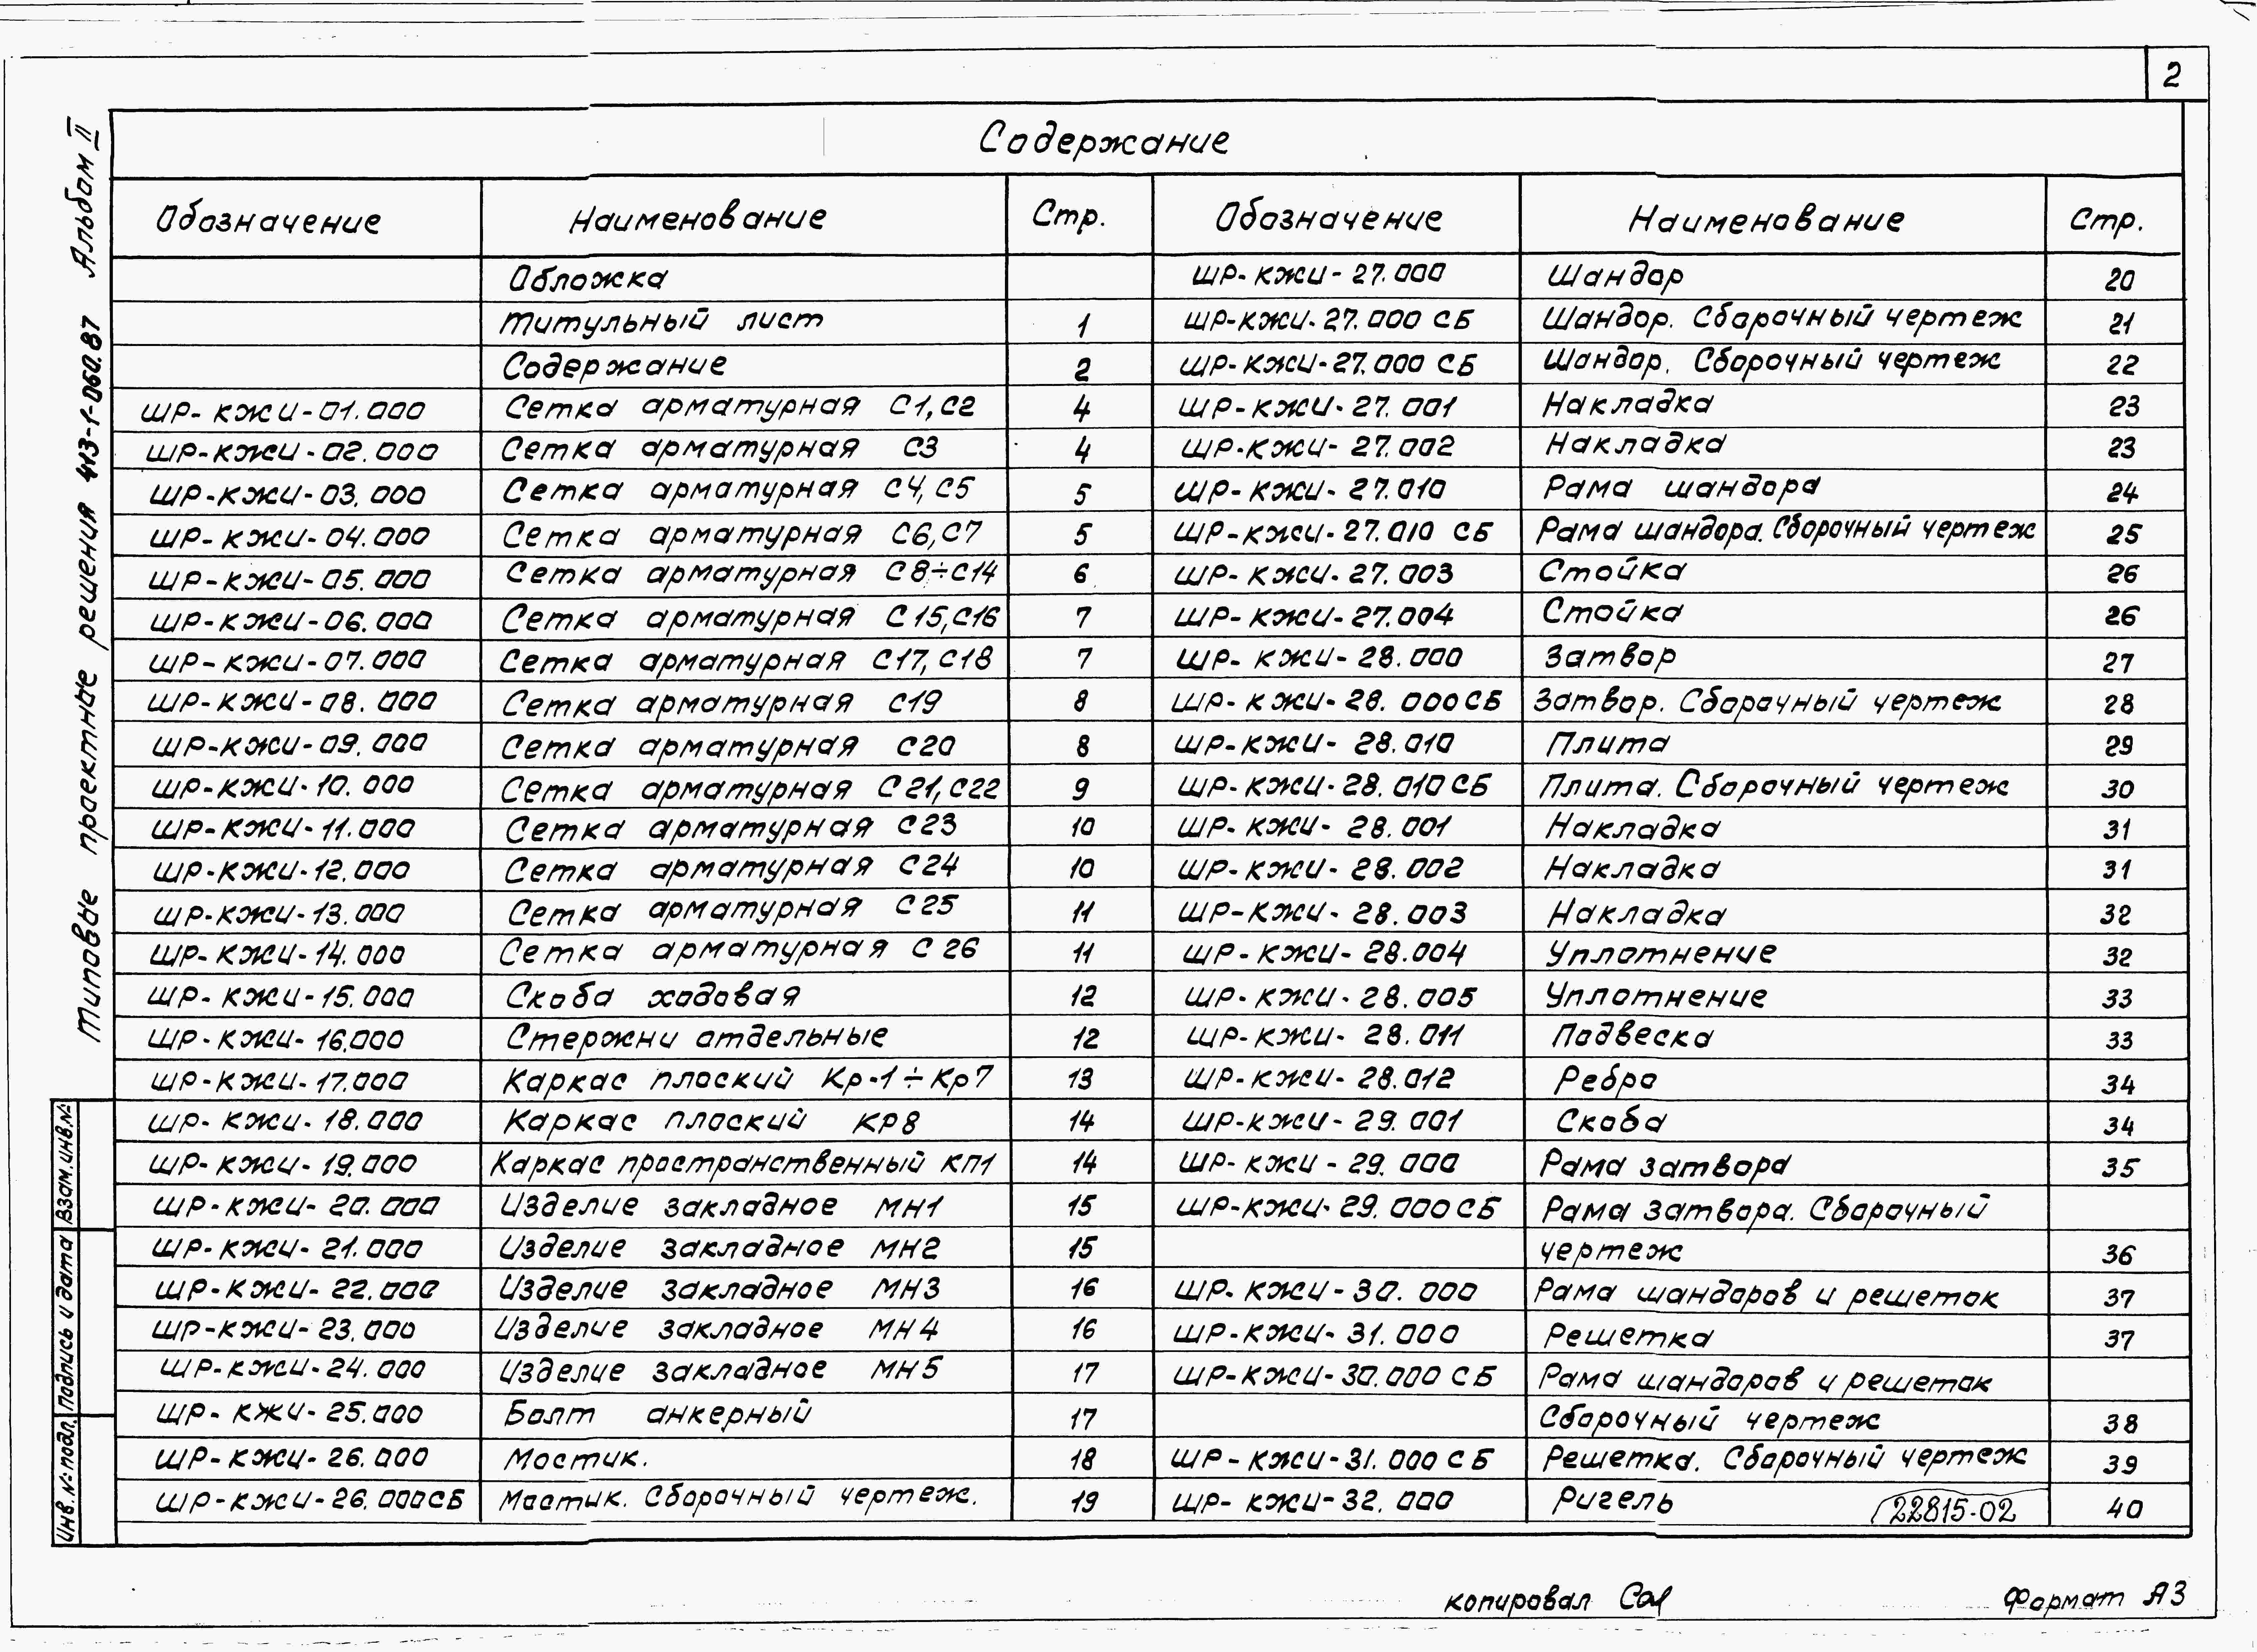 2
Содержание
Обозначение Наименование Стр. Обозначение Наименование Стр.
Обложка ШР-КЖИ-27.000 Шандор 20
Титульный лист 1 ШР-КЖИ-27.000 СБ Шандор. Сборочный чертеж 21
Содержание 2 ШР-КЖИ-27.000 СБ Шандор. Сборочный чертеж 22
ШР-КЖИ-01.000 Сетка арматурная С1, С2 4 ШР-КЖИ-27.001 Накладка 23
ШР-КЖИ-02.000 Сетка арматурная С3 4 ШР-КЖИ-27.002 Накладка 23
ШР-КЖИ-03.000 Сетка арматурная С4, С5 5 ШР-КЖИ-27.010 Рама шандора 24
ШР-КЖИ-04.000 Сетка арматурная С6, С7 5 ШР-КЖИ-27.010 СБ Рама шандора. Сборочный чертеж 25
ШР-КЖИ-05.000 Сетка арматурная С8÷С14 6 ШР-КЖИ-27.003 Стойка 26
ШР-КЖИ-06.000 Сетка арматурная С15, С16 7 ШР-КЖИ-27.004 Стойка 26
ШР-КЖИ-07.000 Сетка арматурная С17, С18 7 ШР-КЖИ-28.000 Затвор 27
ШР-КЖИ-08.000 Сетка арматурная С19 8 ШР-КЖИ-28.000 СБ Затвор. Сборочный чертеж 28
ШР-КЖИ-09.000 Сетка арматурная С20 8 ШР-КЖИ-28.010 Плита 29
ШР-КЖИ-10.000 Сетка арматурная С21, С22 9 ШР-КЖИ-28.010 СБ Плита. Сборочный чертеж 30
ШР-КЖИ-11.000 Сетка арматурная С23 10 ШР-КЖИ-28.001 Накладка 31
ШР-КЖИ-12.000 Сетка арматурная С24 10 ШР-КЖИ-28.002 Накладка 31
ШР-КЖИ-13.000 Сетка арматурная С25 11 ШР-КЖИ-28.003 Накладка 32
ШР-КЖИ-14.000 Сетка арматурная С26 11 ШР-КЖИ-28.004 Уплотнение 32
ШР-КЖИ-15.000 Скоба ходовая 12 ШР-КЖИ-28.005 Уплотнение 33
ШР-КЖИ-16.000 Стержни отдельные 12 ШР-КЖИ-28.011 Подвеска 33
ШР-КЖИ-17.000 Каркас плоский Кр-1÷Кр7 13 ШР-КЖИ-28.012 Ребро 34
ШР-КЖИ-18.000 Каркас плоский КР8 14 ШР-КЖИ-29.001 Скоба 34
ШР-КЖИ-19.000 Каркас пространственный КП1 14 ШР-КЖИ-29.000 Рама затвора 35
ШР-КЖИ-20.000 Изделие закладное МН1 15 ШР-КЖИ-29.000 СБ Рама затвора. Сборочный
ШР-КЖИ-21.000 Изделие закладное МН2 15 чертеж 36
ШР-КЖИ-22.000 Изделие закладное МН3 16 ШР-КЖИ-30.000 Рама шандоров и решеток 37
ШР-КЖИ-23.000 Изделие закладное МН4 16 ШР-КЖИ-31.000 Решетка 37
ШР-КЖИ-24.000 Изделие закладное МН5 17 ШР-КЖИ-30.000 СБ Рама шандоров и решеток
ШР-КЖИ-25.000 Болт анкерный 17 Сборочный чертеж 38
ШР-КЖИ-26.000 Мостик. 18 ШР-КЖИ-31.000 СБ Решетка. Сборочный чертеж 39
ШР-КЖИ-26.000СБ Мостик. Сборочный чертеж. 19 ШР-КЖИ-32.000 Ригель 40
22815-02
Типовые проектные решения 413-1-060.87 Альбом II
Инв.№подл. Подпись и дата Взам.инв.№
копировал
Формат А3